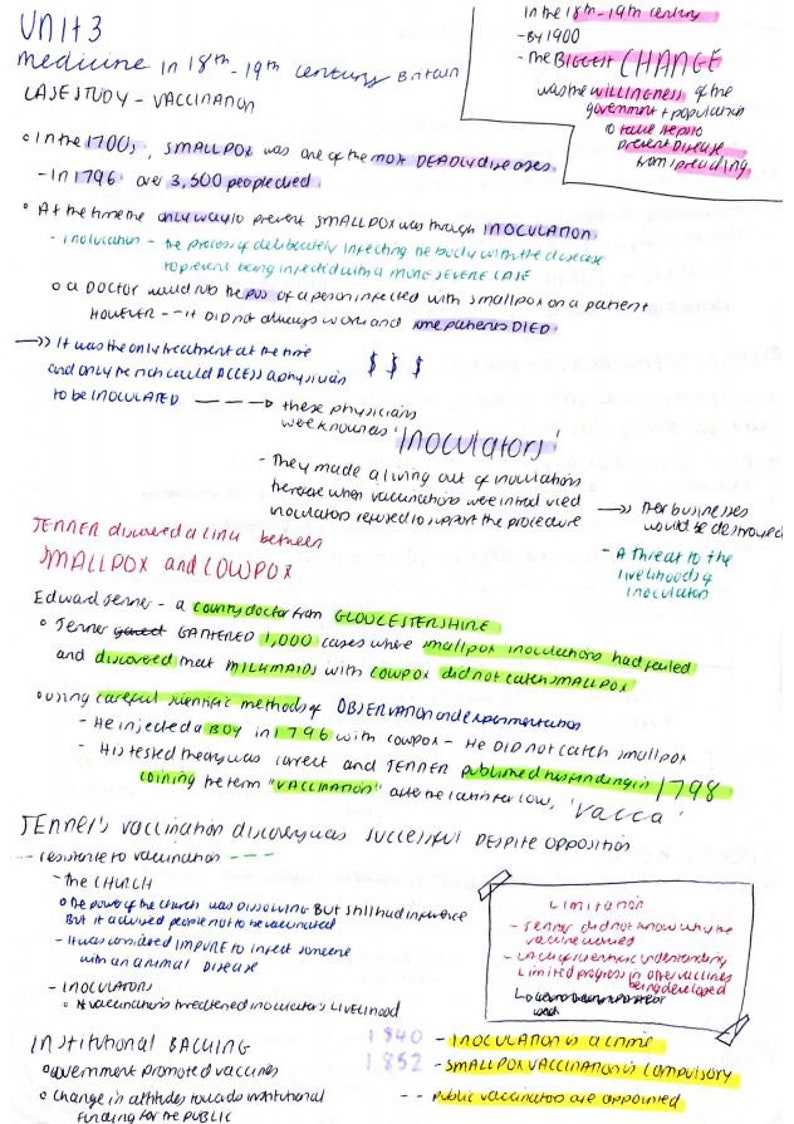 UNIT 3
medicine in 18th - 19th century Britain
CASE STUDY - VACCINATION
In the 18th - 19th century
- BY 1900
- The BIGGEST CHANGE
was the WILLINGNESS of the
government + population
to take steps to
prevent disease
from spreading
In the 1700s, SMALLPOX was one of the most DEADLY diseases
- In 1796 over 3,500 people died
At the time the only way to prevent SMALLPOX was through INOCULATION
- inoculation - the process of deliberately infecting the body with the disease
to prevent being infected with a MORE SEVERE CASE
a DOCTOR would rub the pus of a person infected with smallpox on a patient
HOWEVER -- it DID not always work and some patients DIED
→>> It was the only treatment at the time
and only the rich could ACCESS a physician
to be INOCULATED
$ $ $
these physicians
were known as 'Inoculators'
- They made a living out of inoculations
therefore when vaccinations were introduced
inoculators refused to support the procedure
→>> their businesses
would be destroyed
- A threat to the
livelihoods of
inoculators
JENNER discovered a link between
SMALLPOX and COWPOX
Edward Jenner - a country doctor from GLOUCESTERSHIRE
Jenner GATHERED 1,000 cases where smallpox inoculations had failed
and discovered that MILKMAIDS with COWPOX did not catch SMALLPOX
using careful scientific methods of OBSERVATION and experimentation
- He injected a BOY in 1796 with cowpox - He DID not catch smallpox
- His tested theory was correct and JENNER published his finding in 1798
coining the term "VACCINATION" after the latin for cow, 'vacca'
JENNER's vaccination discovery was SUCCESSFUL DESPITE OPPOSITION
--- resistance to vaccination ---
- The CHURCH
The power of the church was dissolving But still had influence
But it advised people not to be vaccinated
- It was considered IMPURE to infect someone
with an animal DISEASE
- INOCULATORS
vaccinations threatened inoculators LIVELIHOOD
Limitation
- Jenner did not know why the
vaccine worked
- Lack of scientific understanding
Limited progress in other vaccines
being developed
INSTITUTIONAL BACKING
Government promoted vaccines
Change in attitudes towards institutional
funding for the PUBLIC
1840 - INOCULATION is a crime
1852 - SMALLPOX VACCINATION is COMPULSORY
-- public vaccinators are appointed